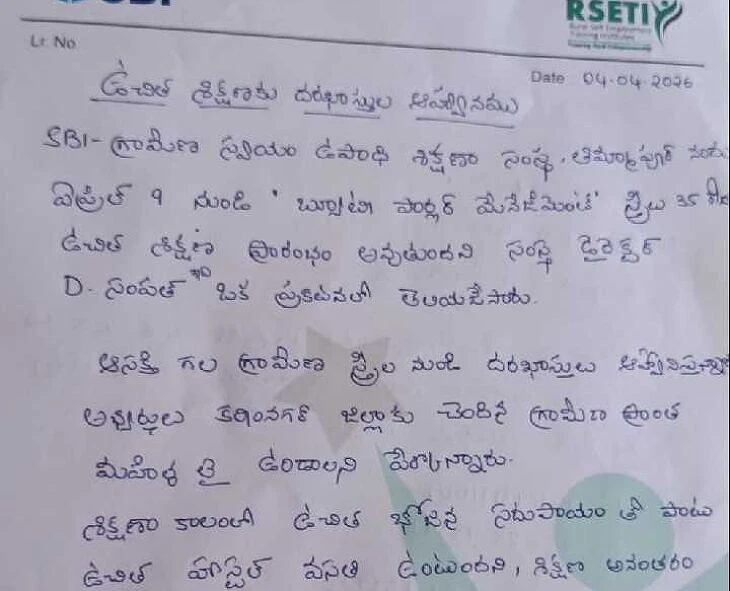 RSETI
Lr. No
Date 04.04.2026
ఉచిత శిక్షణకు దరఖాస్తుల ఆహ్వానము
SBI-గ్రామీణ స్వయం ఉపాధి శిక్షణా సంస్థ, తిమ్మాపూర్ నందు
ఏప్రిల్ 9 నుండి 'బ్యూటీ పార్లర్ మేనేజిమెంట్' స్త్రీలు 35
ఉచిత శిక్షణ ప్రారంభం అవుతుందని సంస్థ డైరెక్టర్
D. సంపత్ ఒక ప్రకటనలో తెలియజేసారు.
ఆసక్తి గల గ్రామీణ స్త్రీల నుండి దరఖాస్తులు
అభ్యర్థులు కరీంనగర్ జిల్లాకు చెందిన గ్రామీణ ప్రాంత
మహిళ లై ఉండాలని పేర్కొన్నారు.
శిక్షణా కాలంలో ఉచిత భోజన సదుపాయం తో పాటు
ఉచిత హాస్టల్ వసతి ఉంటుందని, శిక్షణ అనంతరం